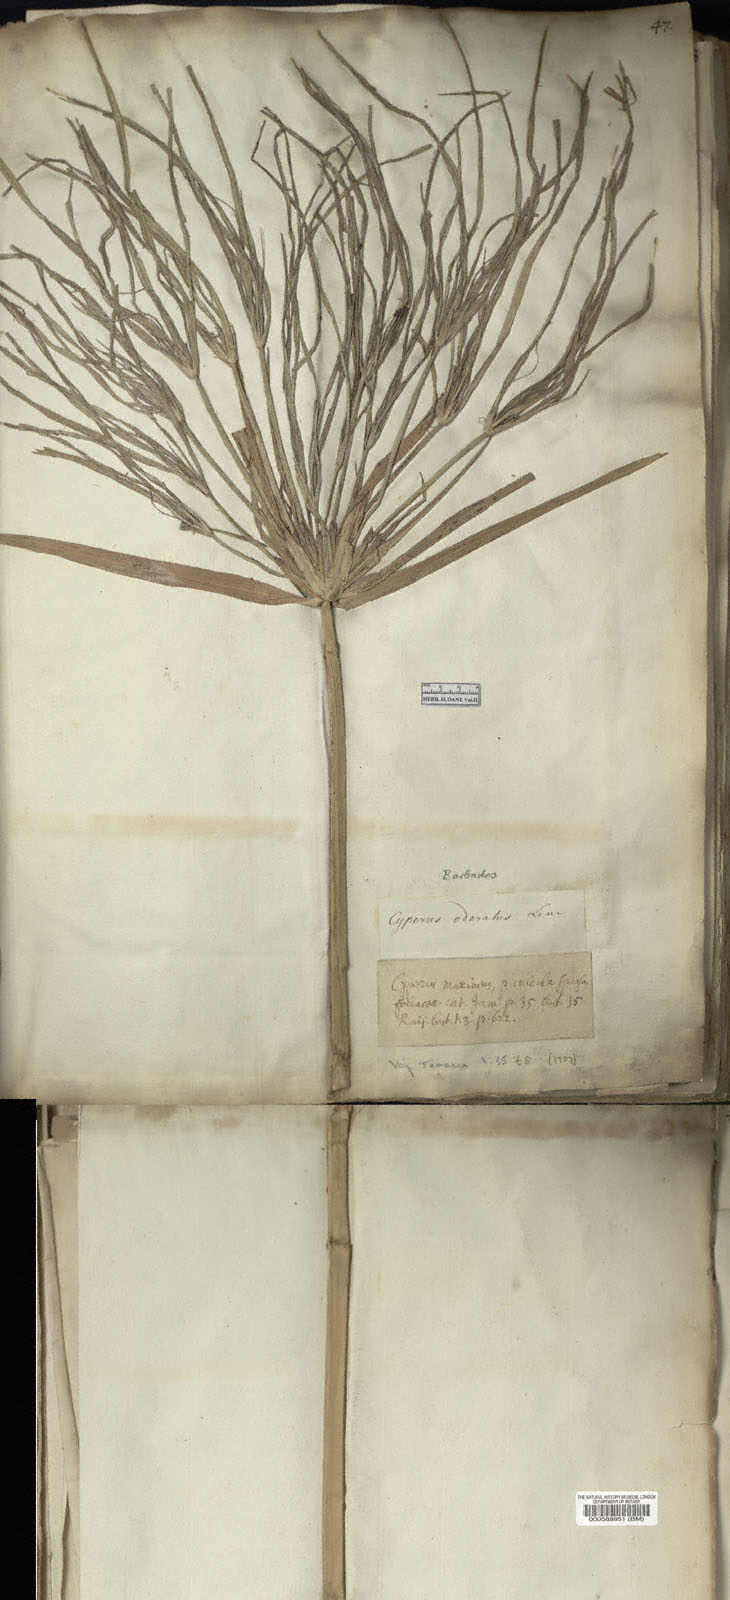 47.
HERB. SLOANE Vol.II
Barbados
Cyperus odoratus Linn.
Cyperus maximus, panicula sparsa
foliacea. cat. Jam. p. 35. hist. 35
Raij. hist. t. 3. p. 622.
Voy Jamaica 1:35 t 8 (1707)
THE NATURAL HISTORY MUSEUM, LONDON
DEPARTMENT OF BOTANY
000588851 (BM)